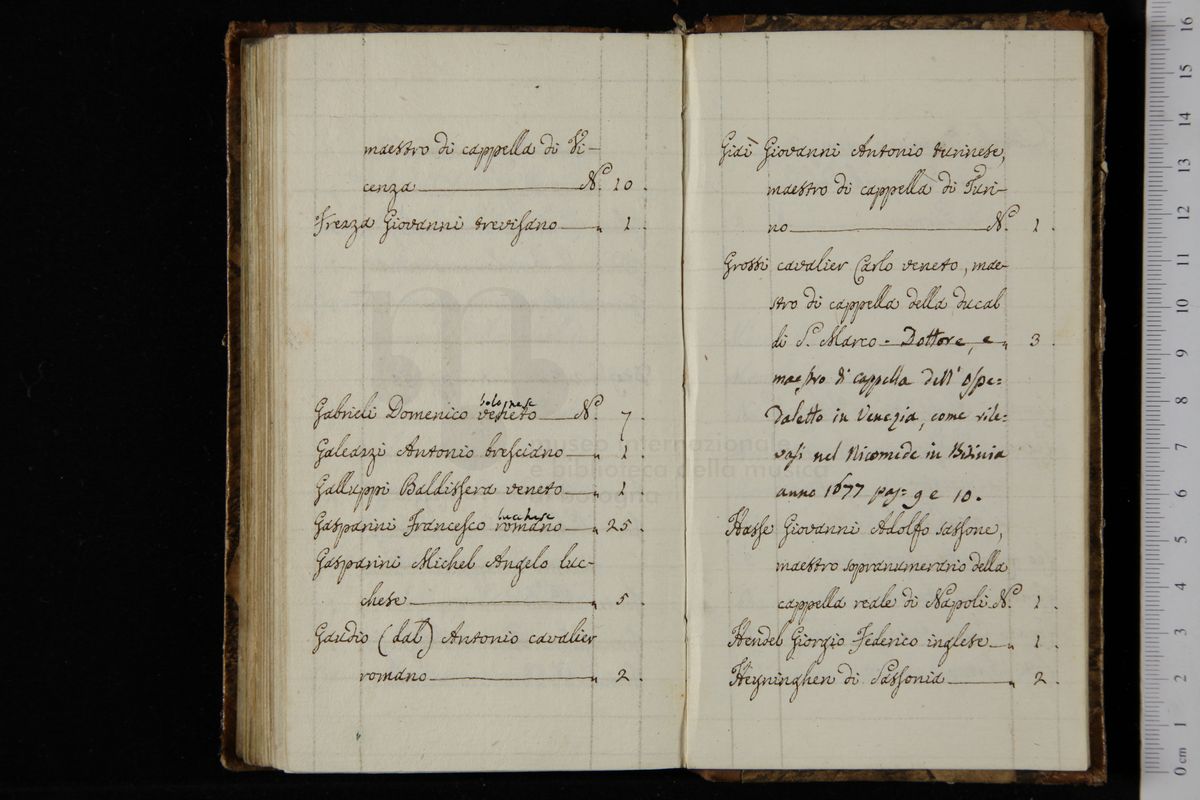 maestro di cappella di Vi-
cenza N.º 10.
Frezza Giovanni trevisano " 1.
bolognese
Gabrieli Domenico veneto N.º 7.
Galeazzi Antonio bresciano " 1.
Galluppi Baldissera veneto " 1.
lucchese
Gasparini Francesco romano " 25.
Gasparini Michel Angelo luc-
chese " 5.
Gaudio (dal) Antonio cavalier
romano " 2.
Giaì Giovanni Antonio turinese,
maestro di cappella di Turi-
no N.º 1.
Grossi cavalier Carlo veneto, mae-
stro di cappella della ducal
di S. Marco - Dottore, e " 3.
maestro di cappella dell' Ospe=
daletto in Venezia, come rile=
vasi nel Nicomede in Bitinia
anno 1677 pag: 9 e 10.
Hasse Giovanni Adolfo sassone,
maestro sopranumerario della
cappella reale di Napoli N.º 1.
Hendel Giorgio Federico inglese " 1.
Heyninghen di Sassonia " 2.
museo internazionale
e biblioteca della musica
16
15
14
13
12
11
10
9
8
7
6
5
4
3
2
1
0 cm